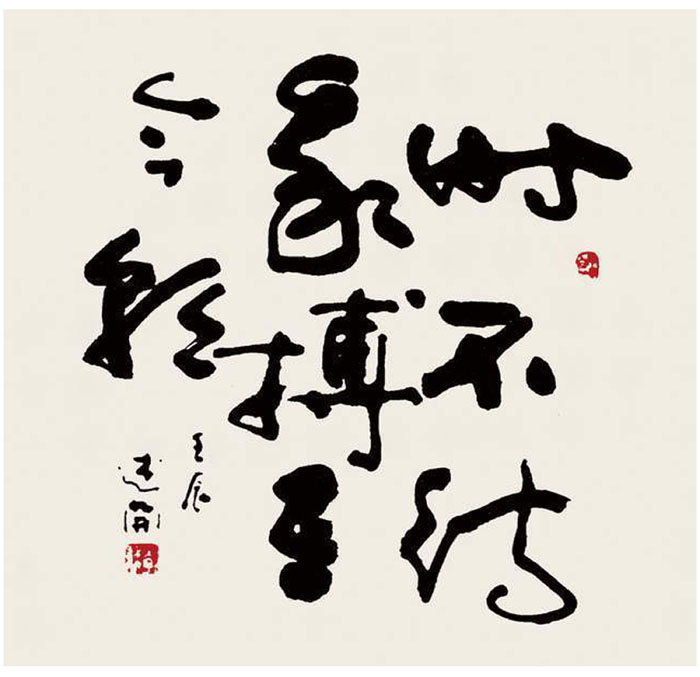 时不待
我搏至
今朝
壬辰